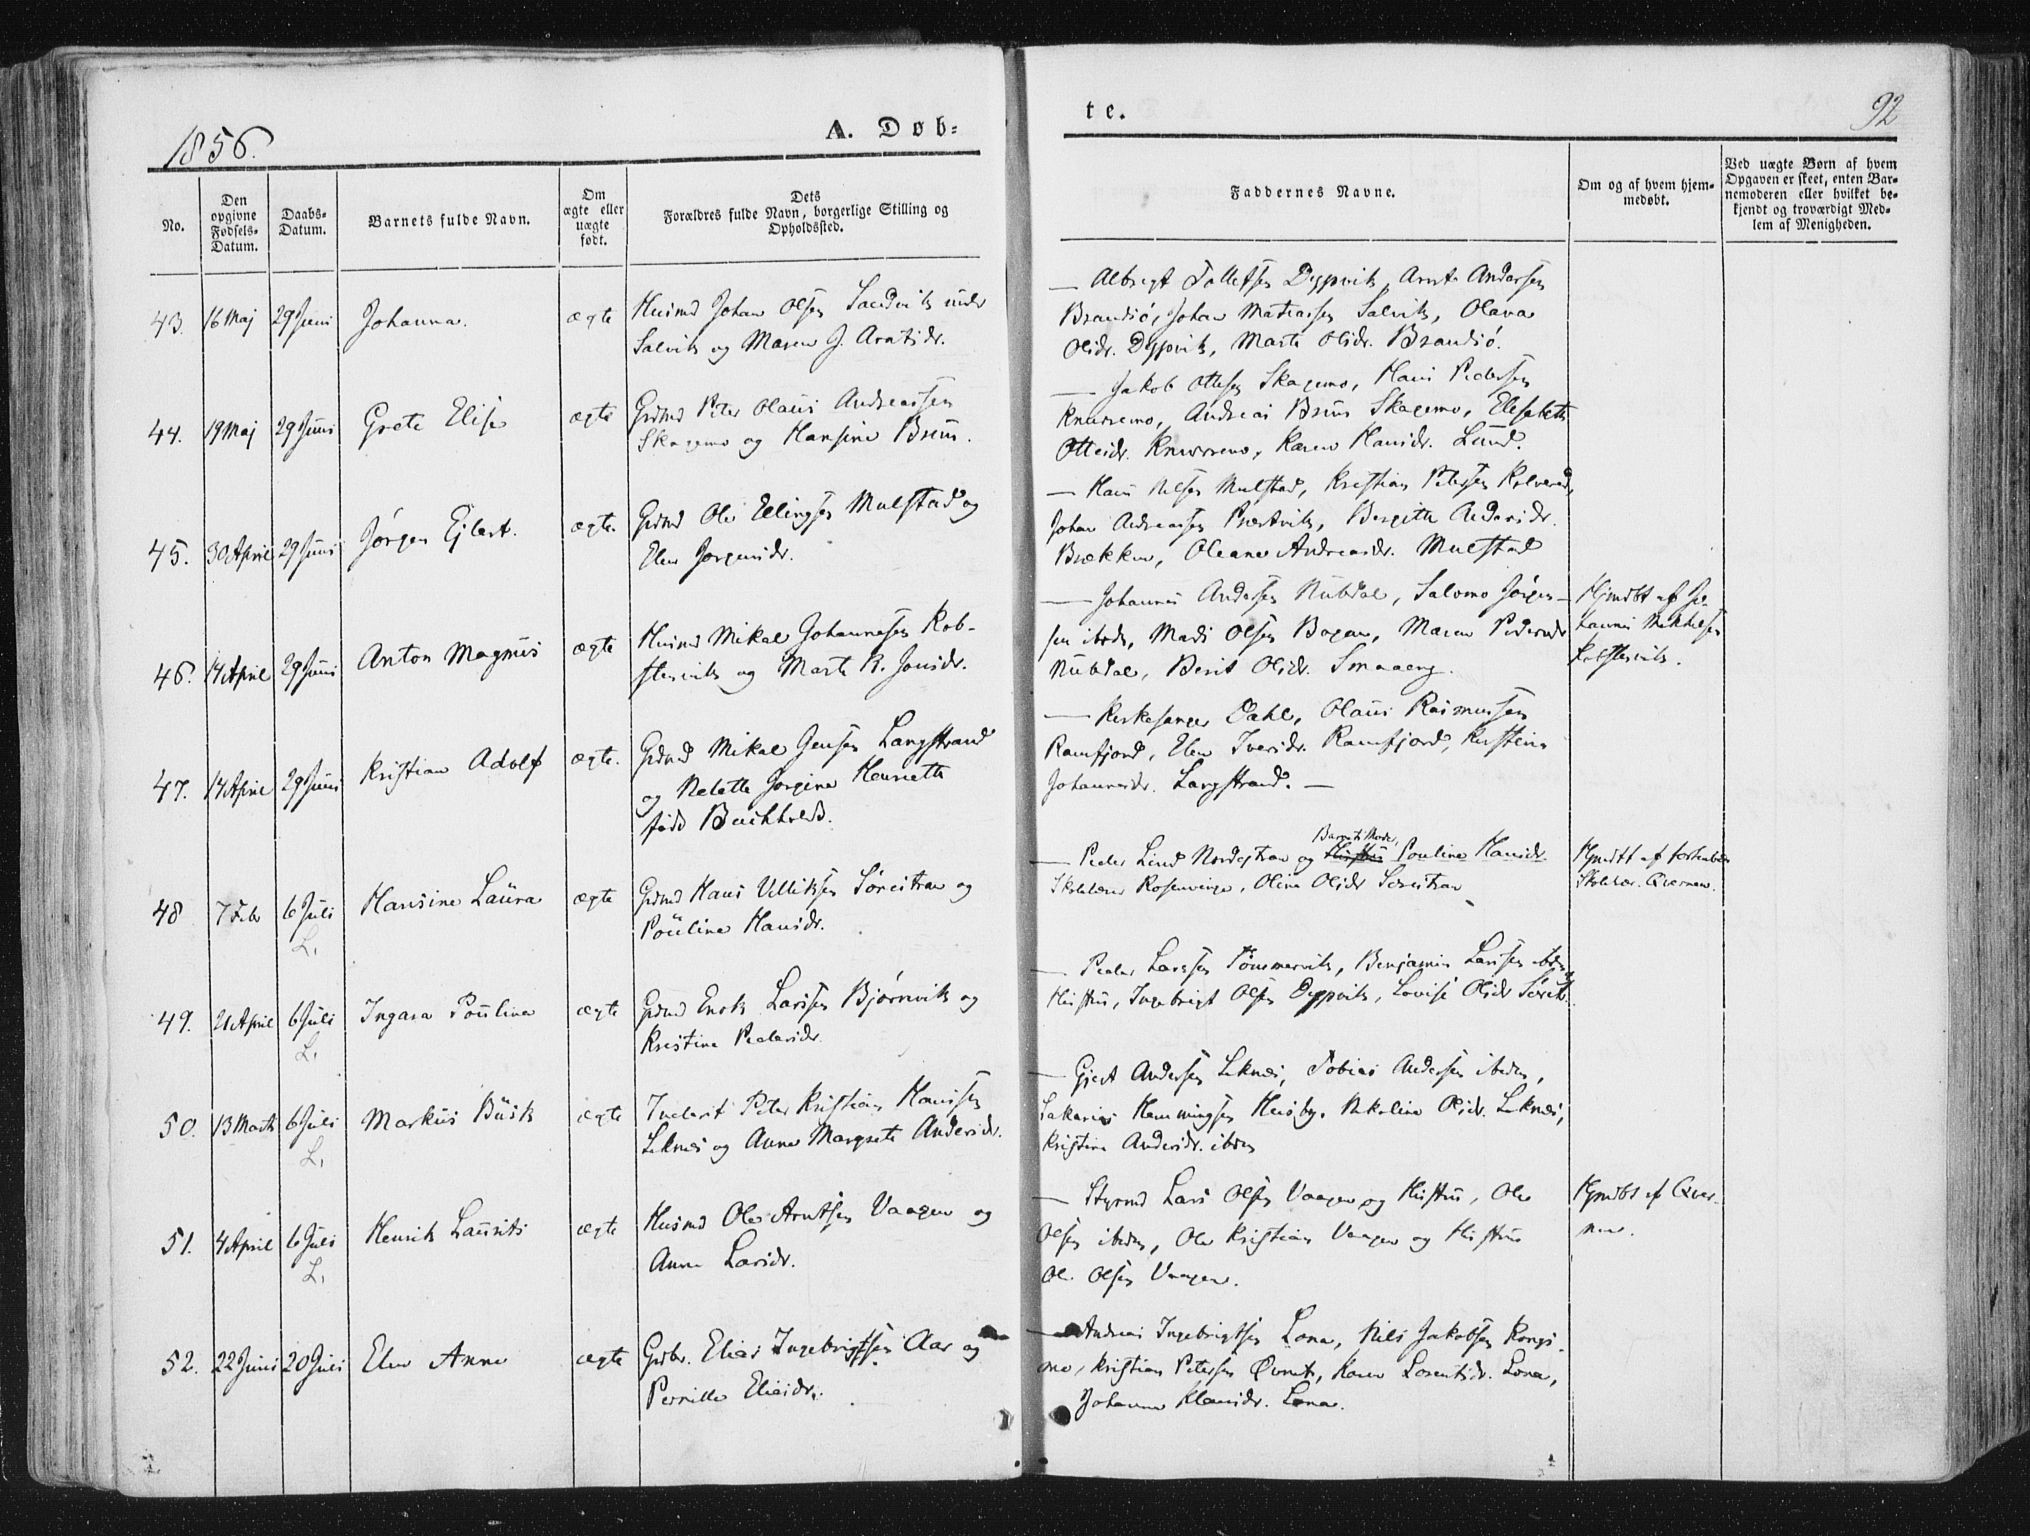 1856.
A. Døb-
te.
92
No.
Den opgivne Fødsels-Datum.
Daabs-Datum.
Barnets fulde Navn.
Om ægte eller uægte født.
Dets Forældres fulde Navn, borgerlige Stilling og Opholdssted.
Faddernes Navne.
Om og af hvem hjem-
medøbt.
Ved uægte Børn af hvem
Opgaven er skeet, enten Bar-
nemoderen eller hvilket be-
kjendt og troværdigt Med-
lem af Menigheden.
43. 16 Maj 29 Juni Johanna. ægte
Husmd Johan Olsen Sandvik under
Salvik og Maren J. Arntsdr.
— Albregt Tolletsen Dypvik, Arnt Andersen
Brandsø, Johan Matiassen Salvik, Olava
Olsdr. Dypvik, Marte Olsdr. Brandsø.
44. 19 Maj 29 Juni Grete Elise ægte
Grdmd Peter Olaus Andreassen
Skagemo og Hansine Bruus.
— Jakob Ottesen Skagemo, Hans Pedersen
Knurremo, Andreas Bruus Skagemo, Elisabeth
Ottesdr. Knurremo, Karen Hansdr. Lund.
45. 30 April 29 Juni Jørgen Ejlert. ægte.
Grdmd Ole Ellingsen Mulstad og
Elen Jørgensdr.
— Hans Nilsen Mulstad, Kristian Petersen Kolvereid,
Johan Andreassen Præstvik, Bergitte Andersdr.
Brækken, Oleane Andreasdr. Mulstad
46. 14 April 29 Juni Anton Magnus ægte
Husmd Mikal Johannesen Kob-
stervik og Marte K. Jonsdr.
— Johannes Andersen Nubdal, Salomo Jørgen-
sen ibdn, Mads Olsen Bogen, Maren Pedersdr
Nubdal, Berit Olsdr. Smaaeng.
Hjmdbt af Jo-
hannes Mikkelsen
Kobstervik.
47. 14 April 29 Juni Kristian Adolf ægte.
Grdmd Mikal Jensen Langstrand
og Nelette Jørgine Henriette
født Buchholdt.
— Kirkesanger Dahl, Olaus Rasmussen
Ramfjord, Elen Iversdr. Ramfjord, Kirstine
Johannesdr. Langstrand. —
48 7 Febr 6 Juli Hansine Laura ægte
L.
Grdmd Hans Ulriksen Sørestrand og
Pouline Hansdr.
— Peder Lund Nordgstran og Hustru Barnets Moder, Pouline Hansdr.
Skolelærer Rosenvinge, Oline Olsdr Sørestran
Hjmdbt af forhenv.
Skolelær. Qvernen.
49. 21 April 6 Juli Ingara Pouline ægte
L.
Grdmd Enok Larssen Bjørnvik og
Kristine Pedersdr.
— Peder Larssen Tømmervik, Benjamin Larssen ibdn og
Hustru, Ingebrigt Olsen Dypvik, Lovise Olsdr
50. 13 Marts 6 Juli Markus Busk ægte
L.
Inderst Peter Kristian Hanssen
Leknes og Anne Margrete Andersdr.
— Gjert Andersen Leknes, Tobias Andersen ibdn,
Sakarias Hemmingsen Husby, Nikoline Olsdr. Leknes,
Kristine Andersdr. ibdn
51. 4 April 6 Juli Henrik Laurits ægte
L.
Husmd Ole Arntsen Vaagen og
Anne Larsdr.
— Styrmd Lars Olsen Vaagen og Hustru, Ole
Olsen ibdn, Ole Kristian Vaagen og Hustru
Ol. Olsen Vaagen.
Hjmdbt af Qver-
nen.
52. 22 Juni 20 Juli Elen Anne ægte
Grdbr. Elias Ingebrigtsen Aar og
Pernille Eliasdr.
— Andreas Ingebrigtsen Lona, Nils Jakobsen Kongs-
mo, Kristian Petersen Øvrevik, Karen Lorentsdr. Lona,
Johanna Klausdr. Lona.